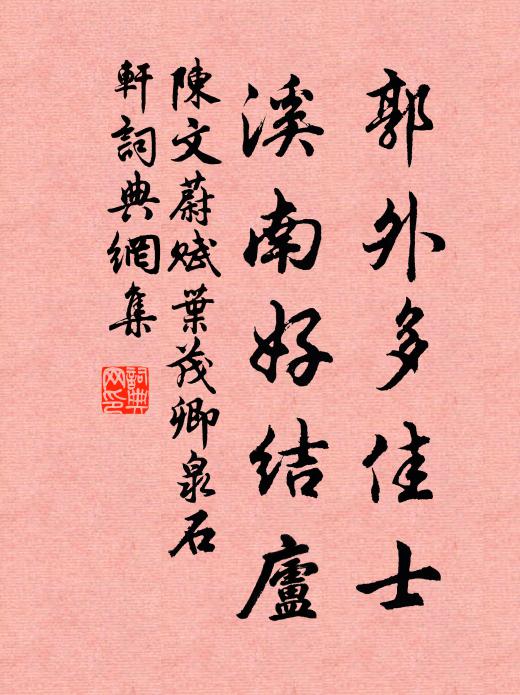 郭外多佳士
溪南好結廬
陳文蔚賦葉茂卿泉石
軒詞典網集
詞典網印